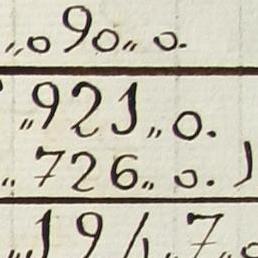 „090„ 0.
„921„ 0.
„726„ 0.
„194„7„0